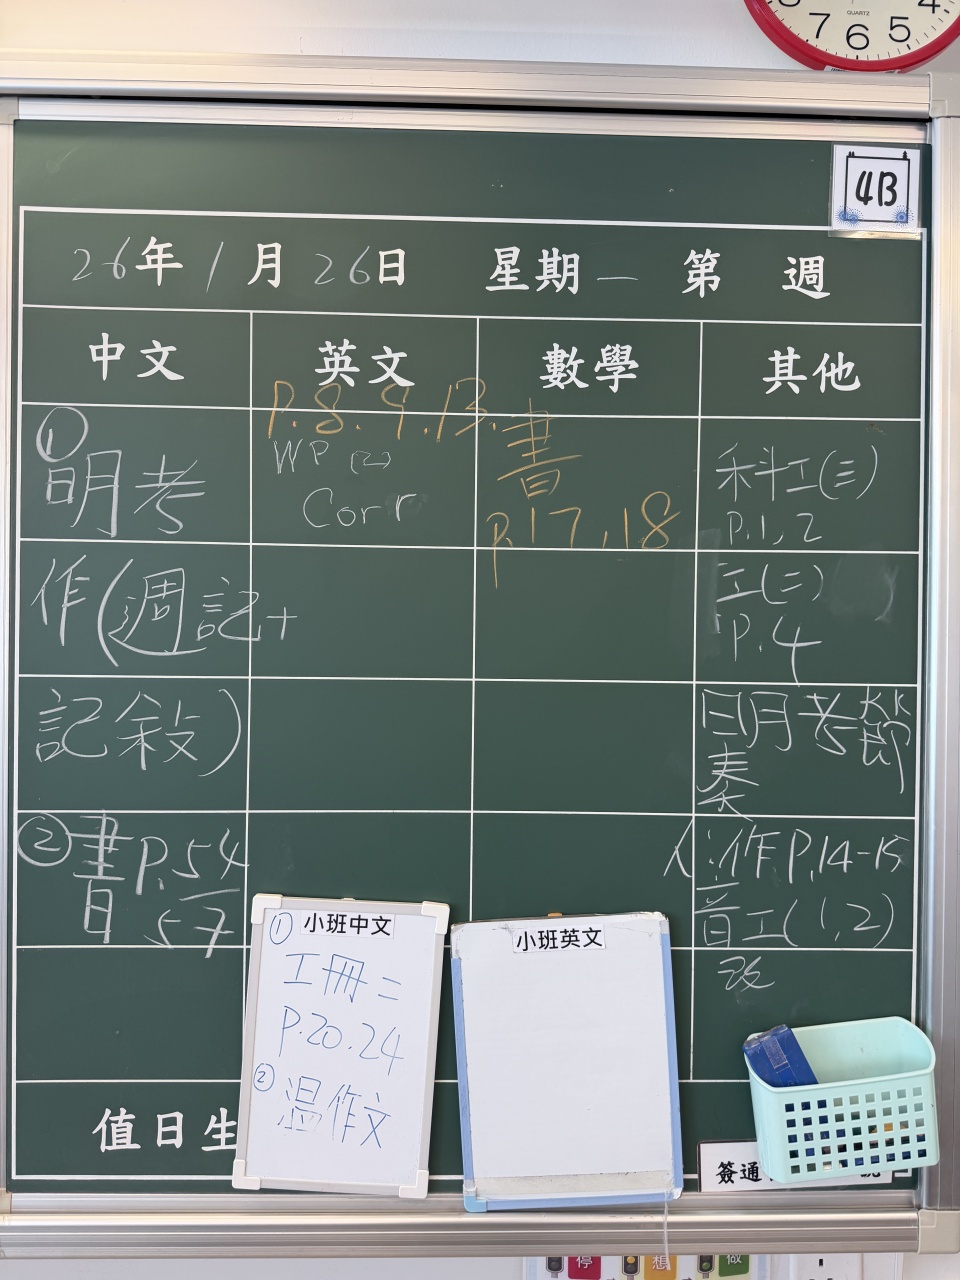 4
7 6 5
QUARTZ
4B
26年1月26日 星期一 第 週
中文
英文
數學
其他
①
明考
作(週記+
記敍)
② 書P.54
57
P.8.9.13.
WP (2)
Corr
書
P.17,18
科工(三)
P.1,2
工(二)
P.4
明考節
奏
作P.14-15
音工(1,2)
改
小班中文
①
工冊二
P.20.24
②
溫作文
小班英文
值日生
簽通
停
想
做